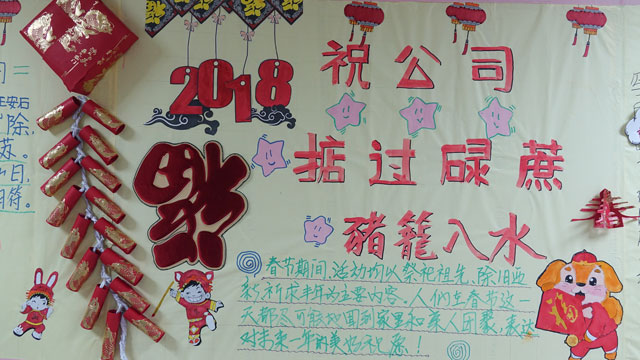 王安石
除,
苏.
日,
符.
2018
祝公司
掂过碌蔗
豬籠入水
福
春节期间,活动均以祭祀祖先,除旧迎
新,祈求丰年为主要内容、人们在春节这一
天都尽可能地回到家里和亲人团聚,表达
对未来一年的美好祝愿!
福